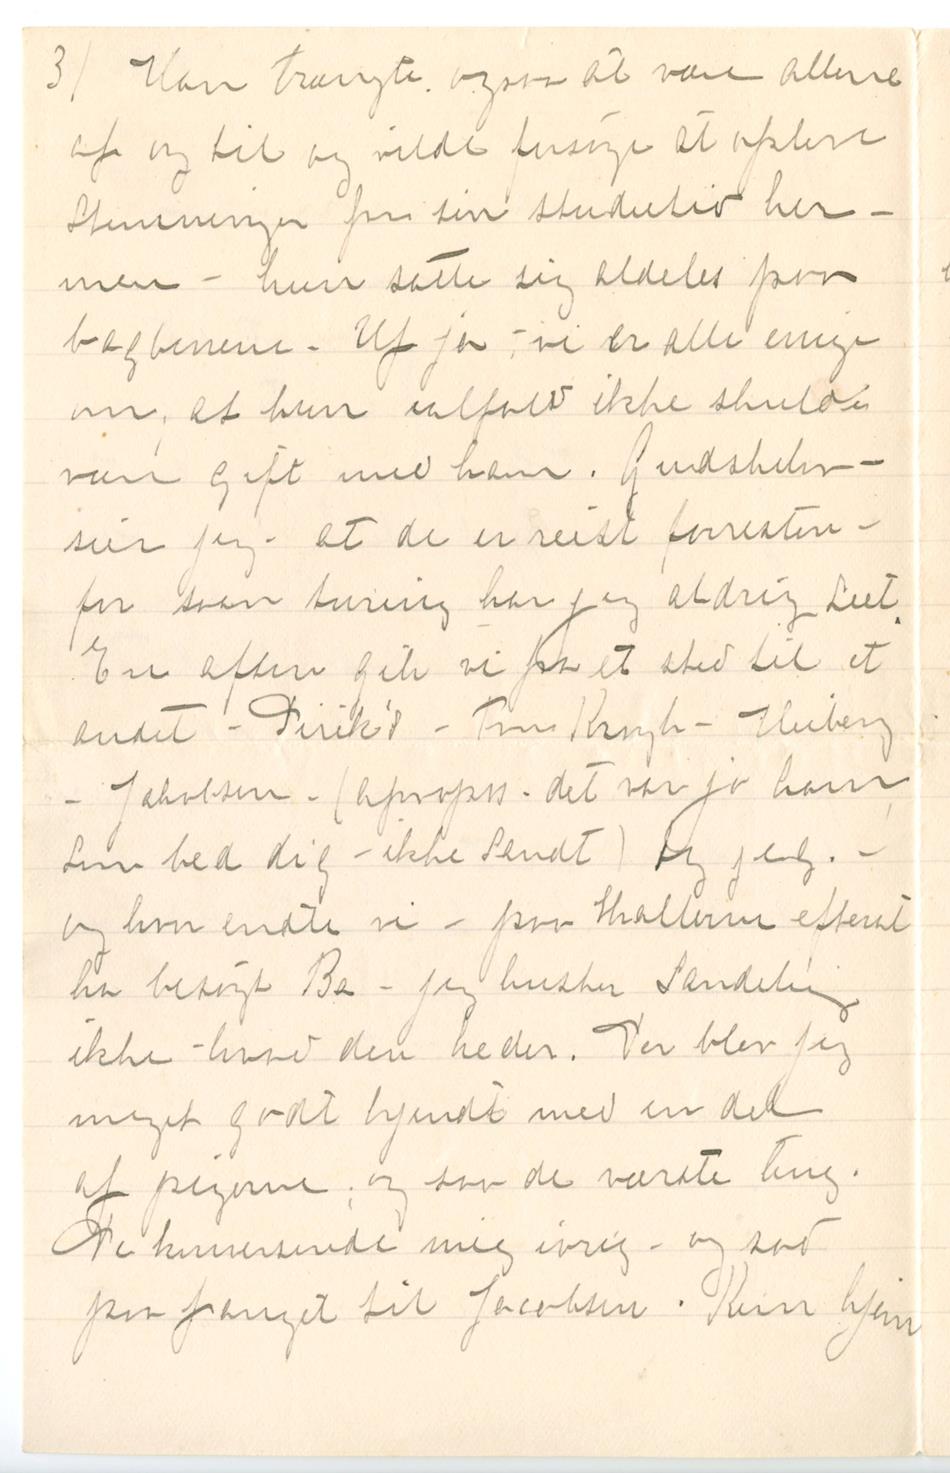 3/ Han trængte også at være allene
af og til og vilde forsøge at opleve
Stemninger fra sin studietid her -
men - hun satte sig aldeles paa
bagbenene - Uf ja - vi er alle enige
om, at hun ialfald ikke skulde
være gift med ham. Gudskelov -
sier jeg - at de er reist forresten -
for saan turing har jeg aldrig seet.
En aften gik vi fra et sted til et
andet - Dirik's - Fru Krogh - Heiberg
- Jakobsen - (apropos - det var jo ham
som bed dig - ikke sandt) og jeg. -
og hvor endte vi - paa Hallerne efterat
ha besøgt Ba - jeg husker sandelig
ikke - hvad den heder. Der blev jeg
meget godt kjendt med en del
af pigerne, og saa de værste ting.
De konverserede mig ivrig - og sad
paa fanget til Jacobsen. Kom hjem